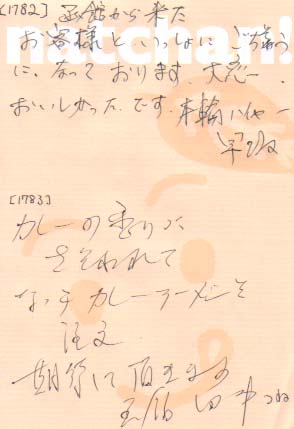 [1782] 函館から来た
natchan!
お客様といっしょにご馳走
になっております。大変
おいしかったです。本輪
早坂
[1783]
カレーの香りに
さそわれて
なっチカレーラーメンを
注文
期待して頂きます
田中